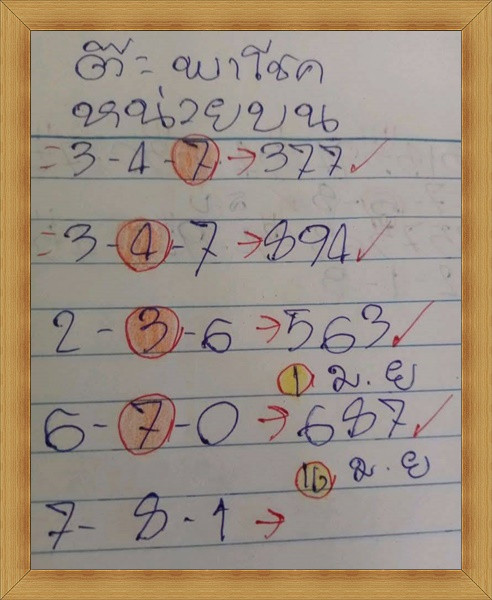 ต๊ะ พาโชค
หน่วยบน
= 3-4-7 → 377 ✓
= 3-4-7 → 894 ✓
2-3-6 → 563 ✓
1 มิ.ย
6-7-0 → 687 ✓
16 มิ.ย
7-8-1 →